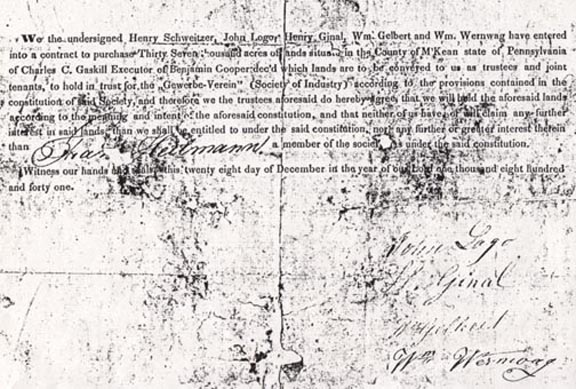 We the undersigned Henry Schweitzer, John Logo, Henry, Ginal, Wm. Gelbert and Wm. Wernwag have entered
into a contract to purchase Thirty Seven thousand acres of lands situate in the County of M'Kean state of Pennsylvania
of Charles C. Gaskill Executor of Benjamin Cooper dec'd which lands are to be conveyed to us as trustees and joint
tenants, to hold in trust for the "Gewerbe-Verein" (Society of Industry) according to the provisions contained in the
constitution of said Society, and therefore we the trustees aforesaid do hereby agree that we will hold the aforesaid lands
according to the meaning and intent of the aforesaid constitution, and that neither of us have or will claim any further
interest in said lands than we shall be entitled to under the said constitution, nor any further or greater interest therein
than a member of the society has under the said constitution.
Witness our hands and seals this twenty eight day of December in the year of our Lord one thousand eight hundred
and forty one.
John Logo
H. Ginal
W Gelbert
Wm Wernwag